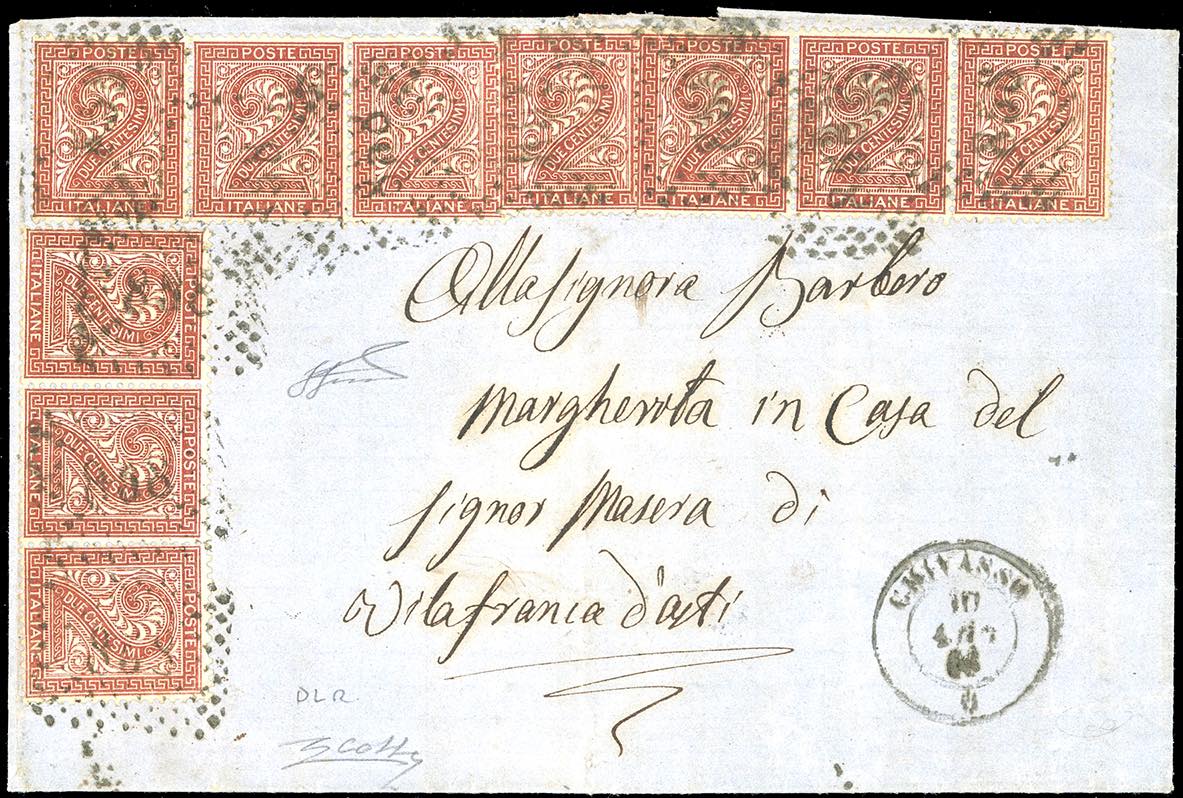 POSTE POSTE POSTE POSTE POSTE POSTE POSTE
2 2 2 2 2 2 2
DUE CENTESIMI DUE CENTESIMI DUE CENTESIMI DUE CENTESIMI DUE CENTESIMI DUE CENTESIMI DUE CENTESIMI
ITALIANE ITALIANE ITALIANE ITALIANE ITALIANE ITALIANE ITALIANE
POSTE
2
DUE CENTESIMI
ITALIANE
POSTE
2
DUE CENTESIMI
ITALIANE
POSTE
2
DUE CENTESIMI
ITALIANE
Alla Signora Barbero
Margherita in Casa del
signor Masera di
Vilafranca d'asti
CHIVASSO
10
DLR